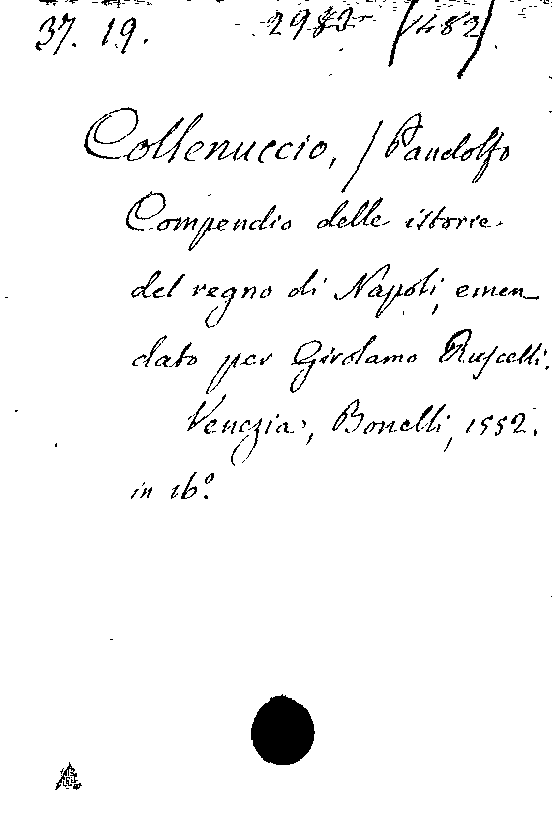 37. 19. (482)
Collenuccio, / Pandolfo
Compendio delle istorie
del regno di Napoli, emen
dato per Girolamo Ruscelli.
Venezia, Bonelli, 1552.
in 16º.